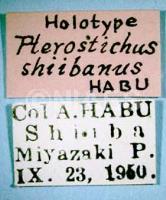 Holotype
Pterostichus
shiibanus
HABU
Col A. HABU
Shiiba
Miyazaki P.
IX. 23, 1950.